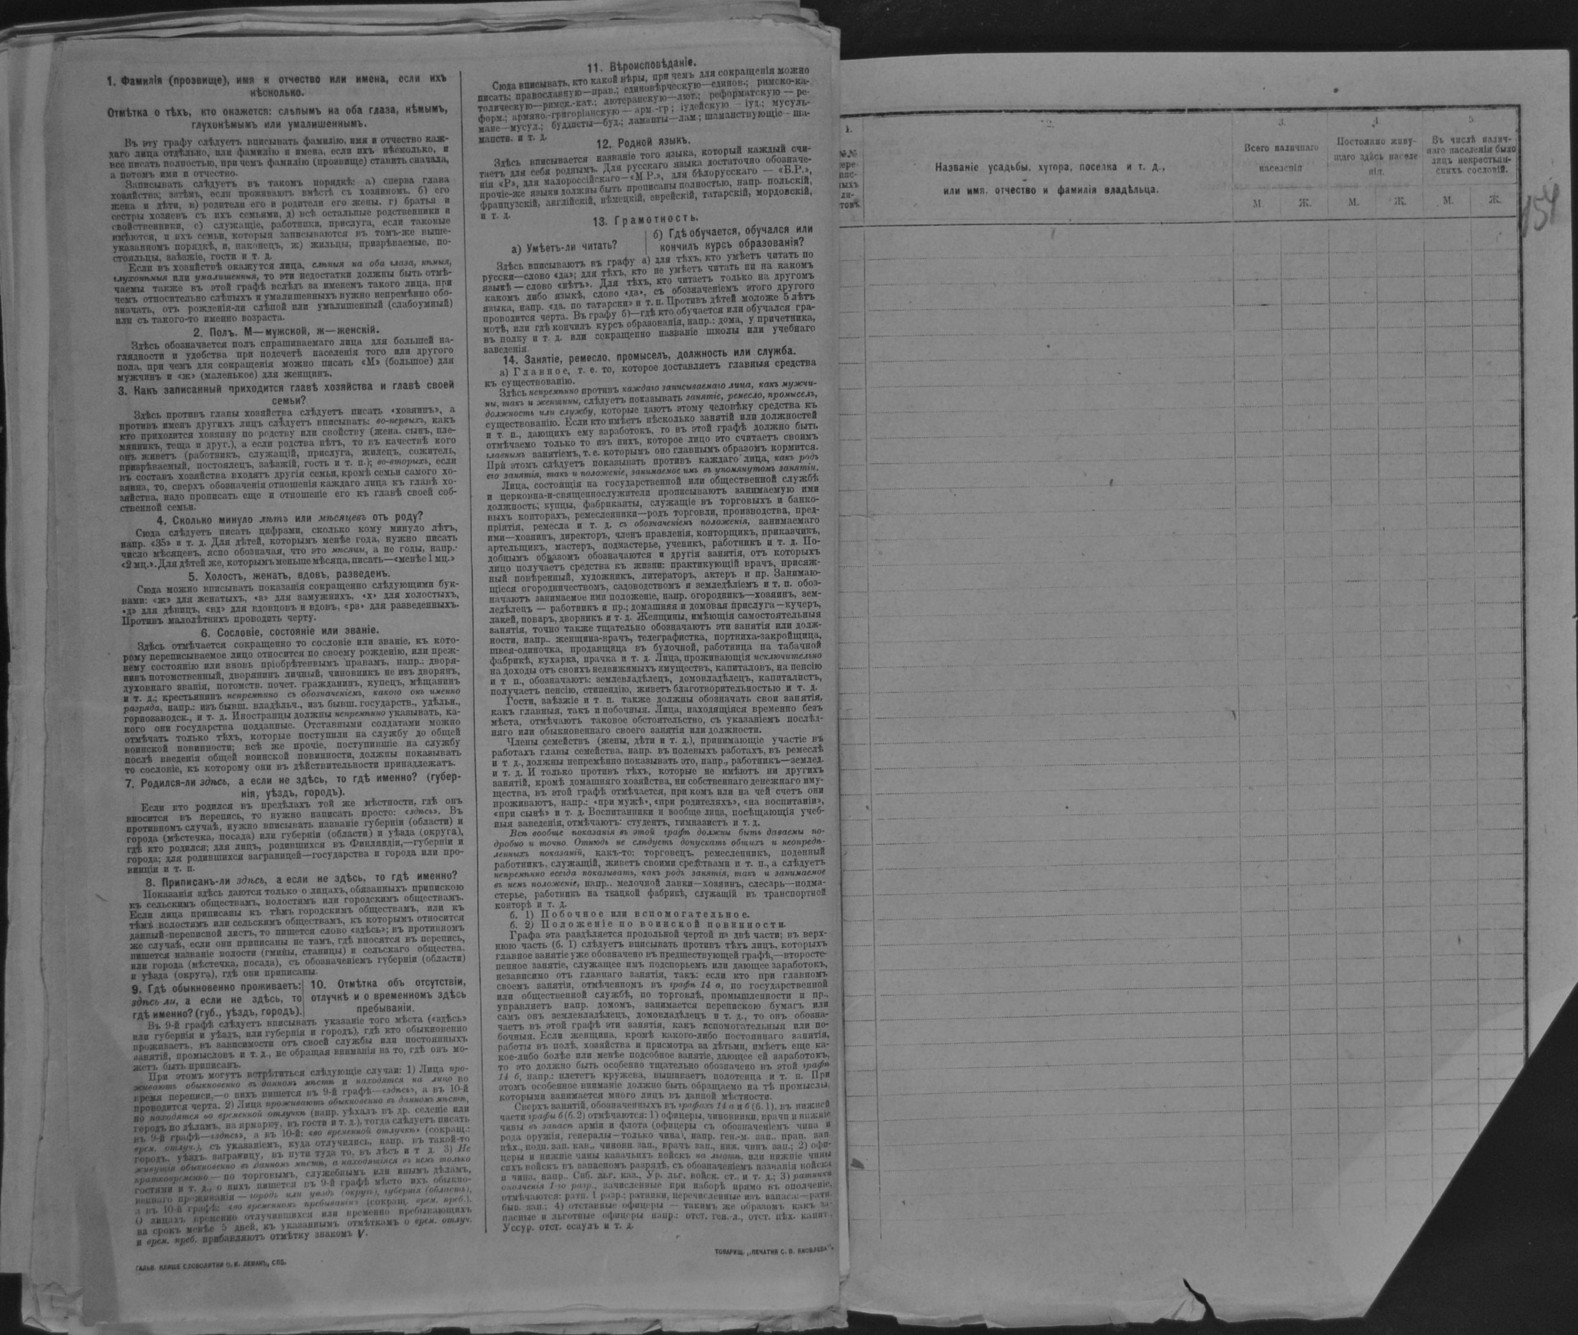 1. Фамилія (прозвище), имя и отчество или имена, если ихъ
нѣсколько.
Отмѣтка о тѣхъ, кто окажется: слѣпымъ на оба глаза, нѣмымъ,
глухонѣмымъ или умалишеннымъ.
Въ эту графу слѣдуетъ вписывать фамилію, имя и отчество каж-
даго лица отдѣльно, или фамилію и имена, если ихъ нѣсколько, и
все писать полностью, при чемъ фамилію (прозвище) ставить сначала,
а потомъ имя и отчество.
Записывать слѣдуетъ въ такомъ порядкѣ: а) сперва глава
хозяйства; затѣмъ, если проживаютъ вмѣстѣ съ хозяиномъ, б) его
жена и дѣти, в) родители его и родители его жены, г) братья и
сестры хозяевъ съ ихъ семьями, д) всѣ остальные родственники и
свойственники, е) служащіе, работники, прислуга, если таковые
имѣются, и ихъ семьи, которыя записываются въ томъ-же выше-
указанномъ порядкѣ, и, наконецъ, ж) жильцы, призрѣваемые, по-
стояльцы, заѣзжіе, гости и т. д.
Если въ хозяйствѣ окажутся лица, слѣпыя на оба глаза, нѣмыя,
глухонѣмыя или умалишенныя, то эти недостатки должны быть отмѣ-
чаемы также въ этой графѣ вслѣдъ за именемъ такого лица, при
чемъ относительно слѣпыхъ и умалишенныхъ нужно непремѣнно обо-
значать, отъ рожденія-ли слѣпой или умалишенный (слабоумный)
или съ такого-то именно возраста.
2. Полъ. М—мужской, ж—женскій.
Здѣсь обозначается полъ спрашиваемаго лица для большей на-
глядности и удобства при подсчетѣ населенія того или другого
пола, при чемъ для сокращенія можно писать «М» (большое) для
мужчинъ и «ж» (маленькое) для женщинъ.
3. Какъ записанный приходится главѣ хозяйства и главѣ своей
семьи?
Здѣсь противъ главы хозяйства слѣдуетъ писать «хозяинъ», а
противъ именъ другихъ лицъ слѣдуетъ вписывать: во-первыхъ, какъ
кто приходится хозяину по родству или свойству (жена, сынъ, пле-
мянникъ, теща и друг.), а если родства нѣтъ, то въ качествѣ кого
онъ живетъ (работникъ, служащій, прислуга, жилецъ, сожитель,
призрѣваемый, постоялецъ, заѣзжій, гость и т. п.); во-вторыхъ, если
въ составъ хозяйства входятъ другія семьи, кромѣ семьи самого хо-
зяина, то, сверхъ обозначенія отношенія каждаго лица къ главѣ хо-
зяйства, надо прописать еще и отношеніе его къ главѣ своей соб-
ственной семьи.
4. Сколько минуло лѣтъ или мѣсяцевъ отъ роду?
Сюда слѣдуетъ писать цифрами, сколько кому минуло лѣтъ,
напр. «35» и т. д. Для дѣтей, которымъ менѣе года, нужно писать
число мѣсяцевъ, ясно обозначая, что это мѣсяцы, а не годы, напр.:
«2 мц.». Для дѣтей же, которымъ меньше мѣсяца, писать—«менѣе 1 мц.»
5. Холостъ, женатъ, вдовъ, разведенъ.
Сюда можно вписывать показанія сокращенно слѣдующими бук-
вами: «ж» для женатыхъ, «з» для замужнихъ, «х» для холостыхъ,
«д» для дѣвицъ, «вд» для вдовцовъ и вдовъ, «рз» для разведенныхъ.
Противъ малолѣтнихъ проводить черту.
6. Сословіе, состояніе или званіе.
Здѣсь отмѣчается сокращенно то сословіе или званіе, къ кото-
рому переписываемое лицо относится по своему рожденію, или преж-
нему состоянію или вновь пріобрѣтеннымъ правамъ, напр.: дворя-
нинъ потомственный, дворянинъ личный, чиновникъ не изъ дворянъ,
духовнаго званія, потомств. почет. гражданинъ, купецъ, мѣщанинъ
и т. д.; крестьянинъ непремѣнно съ обозначеніемъ, какого онъ именно
разряда, напр.: изъ бывш. владѣльч., изъ бывш. государств., удѣльн.,
горнозаводск., и т. д. Иностранцы должны непремѣнно указывать, ка-
кого они государства подданные. Отставными солдатами можно
отмѣчать только тѣхъ, которые поступили на службу до общей
воинской повинности; всѣ же прочіе, поступившіе на службу
послѣ введенія общей воинской повинности, должны показывать
то сословіе, къ которому они въ дѣйствительности принадлежатъ.
7. Родился-ли здѣсь, а если не здѣсь, то гдѣ именно? (губер-
нія, уѣздъ, городъ).
Если кто родился въ предѣлахъ той же мѣстности, гдѣ онъ
вносится въ перепись, то нужно написать просто: «здѣсь». Въ
противномъ случаѣ, нужно вписывать названіе губерніи (области) и
города (мѣстечка, посада) или губерніи (области) и уѣзда (округа),
гдѣ кто родился; для лицъ, родившихся въ Финляндіи,—губерніи и
города; для родившихся заграницей—государства и города или про-
винціи и т. п.
8. Приписанъ-ли здѣсь, а если не здѣсь, то гдѣ именно?
Показанія здѣсь даются только о лицахъ, обязанныхъ припискою
къ сельскимъ обществамъ, волостямъ или городскимъ обществамъ.
Если лица приписаны къ тѣмъ городскимъ обществамъ, или къ
тѣмъ волостямъ или сельскимъ обществамъ, къ которымъ относится
данный переписной листъ, то пишется слово «здѣсь»; въ противномъ
же случаѣ, если они приписаны не тамъ, гдѣ вносятся въ перепись,
пишется названіе волости (гмины, станицы) и сельскаго общества,
или города (мѣстечка, посада), съ обозначеніемъ губерніи (области)
и уѣзда (округа), гдѣ они приписаны.
9. Гдѣ обыкновенно проживаетъ:
здѣсь ли, а если не здѣсь, то
гдѣ именно? (губ., уѣздъ, городъ).
10. Отмѣтка объ отсутствіи,
отлучкѣ и о временномъ здѣсь
пребываніи.
Въ 9-й графѣ слѣдуетъ вписывать указаніе того мѣста («здѣсь»
или губернія и уѣздъ, или губернія и городъ), гдѣ кто обыкновенно
проживаетъ, въ зависимости отъ своей службы или постоянныхъ
занятій, промысловъ и т. д., не обращая вниманія на то, гдѣ онъ мо-
жетъ быть приписанъ.
При этомъ могутъ встрѣтиться слѣдующіе случаи: 1) Лица про-
живаютъ обыкновенно въ данномъ мѣстѣ и находятся на лицо во
время переписи,—о нихъ пишется въ 9-й графѣ—«здѣсь», а въ 10-й
проводится черта. 2) Лица проживаютъ обыкновенно въ данномъ мѣстѣ,
но находятся во временной отлучкѣ (напр. уѣхалъ въ др. селеніе или
городъ по дѣламъ, на ярмарку, въ гости и т. д.), тогда слѣдуетъ писать
въ 9-й графѣ—«здѣсь», а въ 10-й: «во временной отлучкѣ» (сокращ.:
врем. отлуч.), съ указаніемъ, куда отлучились, напр. въ такой-то
городъ, уѣздъ, заграницу, въ пути туда то, въ лѣсъ и т. д. 3) Не
живущія обыкновенно въ данномъ мѣстѣ, а находящіяся въ немъ только
кратковременно — по торговымъ, служебнымъ или инымъ дѣламъ,
гостями и т. д., о нихъ пишется въ 9-й графѣ мѣсто ихъ обыкно-
веннаго проживанія — городъ или уѣздъ (округъ), губернія (область),
а въ 10-й графѣ: «во временномъ пребываніи» (сокращ. врем. преб.).
О лицахъ временно отлучившихся или временно пребывающихъ
на срокъ менѣе 5 дней, къ указаннымъ отмѣткамъ о врем. отлуч.
и врем. преб. прибавляютъ отмѣтку знакомъ V.
11. Вѣроисповѣданіе.
Сюда вписывать, кто какой вѣры, при чемъ для сокращенія можно
писать: православную—прав.; единовѣрческую—единов.; римско-ка-
толическую—римск.-кат.; лютеранскую—лют.; реформатскую — ре-
форм.; армяно.-григоріанскую — арм.-гр; іудейскую — іуд.; мусуль-
мане—мусул.; буддисты—буд.; ламаиты—лам.; шаманствующіе— ша-
манств. и т. д.
12. Родной языкъ.
Здѣсь вписывается названіе того языка, который каждый счи-
таетъ для себя роднымъ. Для русскаго языка достаточно обозначе-
нія «Р», для малороссійскаго—«М.Р.», для бѣлорусскаго — «Б.Р.»,
прочіе-же языки должны быть прописаны полностью, напр. польскій,
французскій, англійскій, нѣмецкій, еврейскій, татарскій, мордовскій,
и т. д.
13. Грамотность.
а) Умѣетъ-ли читать?
б) Гдѣ обучается, обучался или
кончилъ курсъ образованія?
Здѣсь вписываютъ въ графу а) для тѣхъ, кто умѣетъ читать по
русски—слово «да»; для тѣхъ, кто не умѣетъ читать ни на какомъ
языкѣ — слово «нѣтъ». Для тѣхъ, кто читаетъ только на другомъ
какомъ либо языкѣ, слово «да», съ обозначеніемъ этого другого
языка, напр. «да, по татарски» и т. п. Противъ дѣтей моложе 5 лѣтъ
проводится черта. Въ графу б)—гдѣ кто обучается или обучался гра-
мотѣ, или гдѣ кончилъ курсъ образованія, напр.: дома, у причетника,
въ полку и т. д. или сокращенно названіе школы или учебнаго
заведенія.
14. Занятіе, ремесло, промыселъ, должность или служба.
а) Главное, т. е. то, которое доставляетъ главныя средства
къ существованію.
Здѣсь непремѣнно противъ каждаго записываемаго лица, какъ мужчи-
ны, такъ и женщины, слѣдуетъ показывать занятіе, ремесло, промыселъ,
должность или службу, которые даютъ этому человѣку средства къ
существованію. Если кто имѣетъ нѣсколько занятій или должностей
и т. п., дающихъ ему заработокъ, то въ этой графѣ должно быть
отмѣчаемо только то изъ нихъ, которое лицо это считаетъ своимъ
главнымъ занятіемъ, т. е. которымъ оно главнымъ образомъ кормится.
При этомъ слѣдуетъ показывать противъ каждаго лица, какъ родъ
его занятія, такъ и положеніе, занимаемое имъ въ упомянутомъ занятіи.
Лица, состоящія на государственной или общественной службѣ
и церковно-и-священнослужители прописываютъ занимаемую ими
должность; купцы, фабриканты, служащіе въ торговыхъ и банко-
выхъ конторахъ, ремесленники—родъ торговли, производства, пред-
пріятія, ремесла и т. д. съ обозначеніемъ положенія, занимаемаго
ими—хозяинъ, директоръ, членъ правленія, конторщикъ, приказчикъ,
артельщикъ, мастеръ, подмастерье, ученикъ, работникъ и т. д. По-
добнымъ образомъ обозначаются и другія занятія, отъ которыхъ
лицо получаетъ средства къ жизни: практикующій врачъ, присяж-
ный повѣренный, художникъ, литераторъ, актеръ и пр. Занимаю-
щіеся огородничествомъ, садоводствомъ и земледѣліемъ и т. п. обоз-
начаютъ занимаемое ими положеніе, напр. огородникъ—хозяинъ, зем-
ледѣлецъ — работникъ и пр.; домашняя и домовая прислуга—кучеръ,
лакей, поваръ, дворникъ и т. д. Женщины, имѣющія самостоятельныя
занятія, точно также тщательно обозначаютъ эти занятія или долж-
ности, напр., женщина-врачъ, телеграфистка, портниха-закройщица,
швея-одиночка, продавщица въ булочной, работница на табачной
фабрикѣ, кухарка, прачка и т. д. Лица, проживающія исключительно
на доходы отъ своихъ недвижимыхъ имуществъ, капиталовъ, на пенсію
и т п., обозначаютъ: землевладѣлецъ, домовладѣлецъ, капиталистъ,
получаетъ пенсію, стипендію, живетъ благотворительностью и т. д.
Гости, заѣзжіе и т. п. также должны обозначать свои занятія,
какъ главныя, такъ и побочныя. Лица, находящіяся временно безъ
мѣста, отмѣчаютъ таковое обстоятельство, съ указаніемъ послѣд-
няго или обыкновеннаго своего занятія или должности.
Члены семействъ (жены, дѣти и т. д.), принимающіе участіе въ
работахъ главы семейства, напр. въ полевыхъ работахъ, въ ремеслѣ
и т. д., должны непремѣнно показывать это, напр., работникъ—землед.
и т. д. И только противъ тѣхъ, которые не имѣютъ ни другихъ
занятій, кромѣ домашняго хозяйства, ни собственнаго денежнаго иму-
щества, въ этой графѣ отмѣчается, при комъ или на чей счетъ они
проживаютъ, напр.: «при мужѣ», «при родителяхъ», «на воспитаніи»,
«при сынѣ» и т. д. Воспитанники и вообще лица, посѣщающія учеб-
ныя заведенія, отмѣчаютъ: студентъ, гимназистъ и т. д.
Всѣ вообще показанія въ этой графѣ должны быть даваемы по-
дробно и точно. Отнюдь не слѣдуетъ допускать общихъ и неопредѣ-
ленныхъ показаній, какъ-то: торговецъ, ремесленникъ, поденный
работникъ, служащій, живетъ своими средствами и т. п., а слѣдуетъ
непремѣнно всегда показывать, какъ родъ занятія, такъ и занимаемое
въ немъ положеніе, напр., мелочной лавки—хозяинъ, слесарь—подма-
стерье, работникъ на ткацкой фабрикѣ, служащій въ транспортной
конторѣ и т. д.
б. 1) Побочное или вспомогательное.
б. 2) Положеніе по воинской повинности.
Графа эта раздѣляется продольной чертой на двѣ части; въ верх-
нюю часть (б. 1) слѣдуетъ вписывать противъ тѣхъ лицъ, которыхъ
главное занятіе уже обозначено въ предшествующей графѣ,—второсте-
пенное занятіе, служащее имъ подспорьемъ или дающее заработокъ,
независимо отъ главнаго занятія, такъ: если кто при главномъ
своемъ занятіи, отмѣченномъ въ графѣ 14 а, по государственной
или общественной службѣ, по торговлѣ, промышленности и пр.,
управляетъ напр. домомъ, занимается перепискою бумагъ или
самъ онъ землевладѣлецъ, домовладѣлецъ и т. д., то онъ обозна-
чаетъ въ этой графѣ эти занятія, какъ вспомогательныя или по-
бочныя. Если женщина, кромѣ какого-либо постояннаго занятія,
работы въ полѣ, хозяйства и присмотра за дѣтьми, имѣетъ еще ка-
кое-либо болѣе или менѣе подсобное занятіе, дающее ей заработокъ,
то это должно быть особенно тщательно обозначено въ этой графѣ
14 б, напр.: плететъ кружева, вышиваетъ полотенца и т. п. При
этомъ особенное вниманіе должно быть обращаемо на тѣ промыслы,
которыми занимается много лицъ въ данной мѣстности.
Сверхъ занятій, обозначенныхъ въ графахъ 14 а и б (б. 1), въ нижней
части графы б (б. 2) отмѣчаются: 1) офицеры, чиновники, врачи и нижніе
чины въ запасѣ арміи и флота (офицеры съ обозначеніемъ чина и
рода оружія, генералы—только чина), напр. ген.-м. зап., прап. зап.
пѣх., подп. зап. кав., чиновн. зап., врачъ зап., ниж. чинъ зап.; 2) офи-
церы и нижніе чины казачьихъ войскъ на льготѣ, или нижніе чины
сихъ войскъ въ запасномъ разрядѣ, съ обозначеніемъ названія войска
и чина, напр., Сиб. льг. каз., Ур. льг. войск. ст., и т. д.; 3) ратники
ополченія 1-го разр., зачисленные при наборѣ прямо въ ополченіе,
отмѣчаются: ратн. 1 разр.; ратники, перечисленные изъ запаса:—ратн.
быв. зап.; 4) отставные офицеры — такимъ же образомъ какъ за-
пасные и льготные офицеры напр.: отст. ген.-л., отст. пѣх. капит.,
Уссур. отст. есаулъ и т. д.
ГАЛЬВ. КЛИШЕ СЛОВОЛИТНИ О. И. ЛЕМАНЪ, СПБ.
ТОВАРИЩ. „ПЕЧАТНЯ С. П. ЯКОВЛЕВА“.
1.
2.
3.
4.
5
№№
пере-
пис-
ныхъ
ли-
стовъ.
Названіе усадьбы, хутора, поселка и т. д.,
или имя, отчество и фамилія владѣльца.
Всего наличнаго
населенія
Постоянно живу-
щаго здѣсь населе-
нія.
Въ числѣ налич-
наго населенія было
лицъ некрестьян-
скихъ сословій.
М.
Ж.
М.
Ж.
М.
Ж.
154